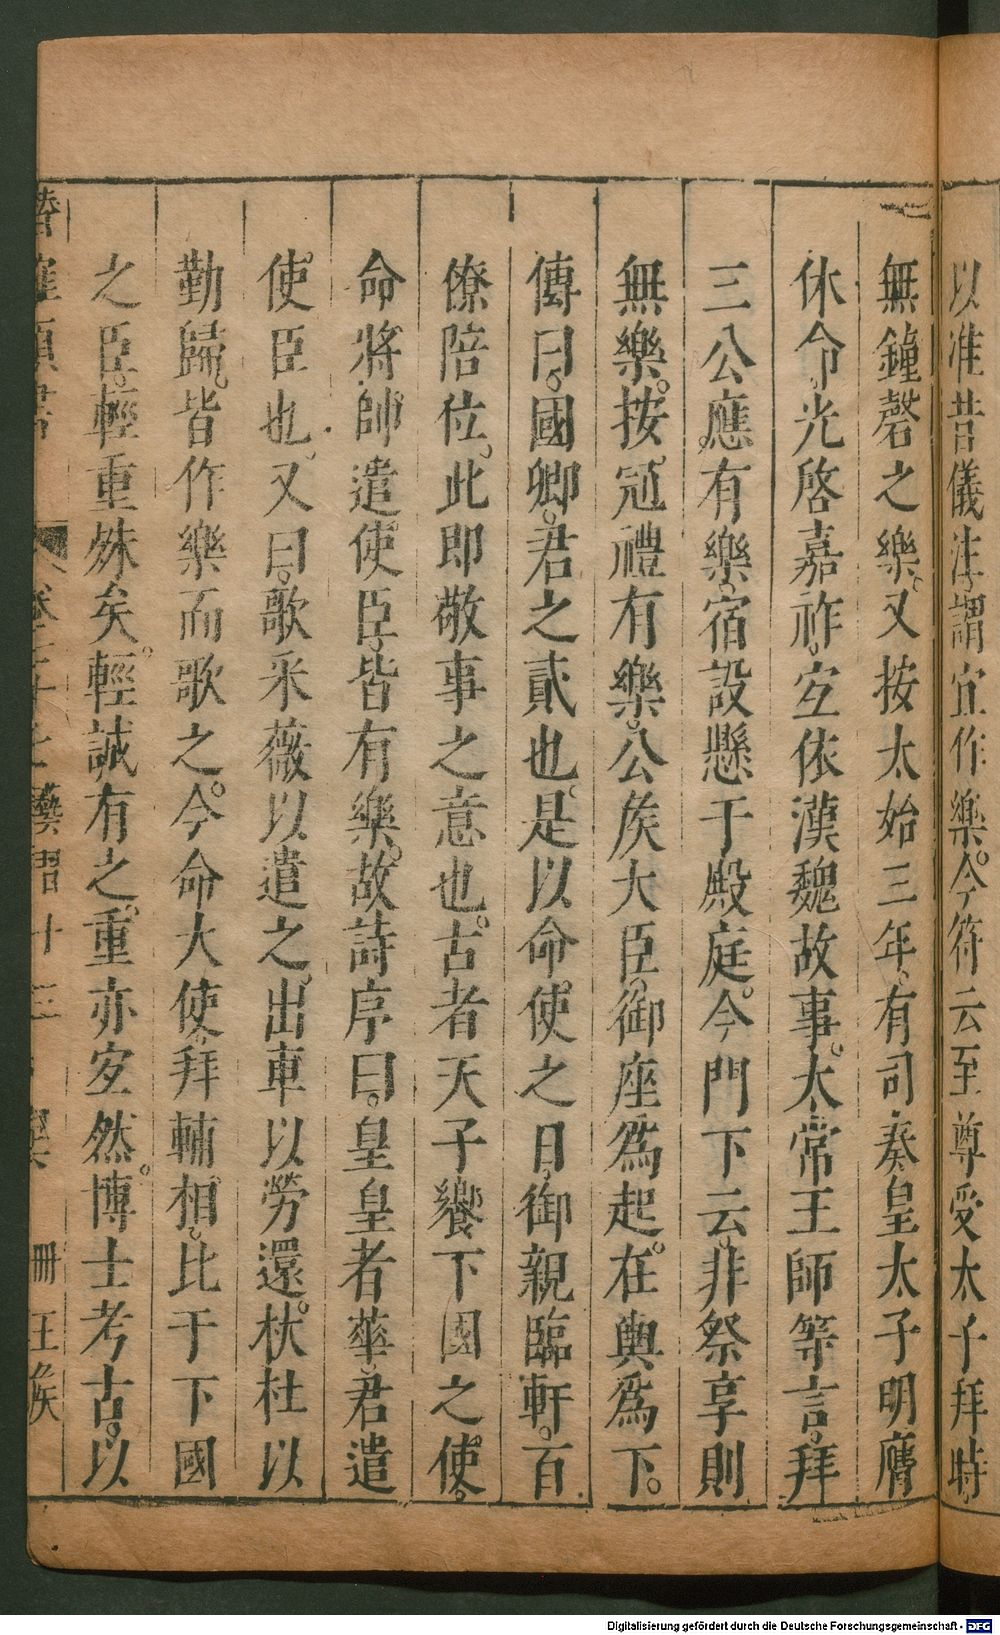 以准昔儀注謂宜作樂。今符云至尊受太子拜時
無鐘磬之樂。又按太始三年、有司奏皇太子明膺
休命、光啓嘉祚。宜依漢魏故事。太常王師等言、拜
三公、應有樂、宿設懸于殿庭。今門下云、非祭享則
無樂。按冠禮有樂、公矦大臣、御座爲起。在輿爲下。
傳曰。國卿。君之貳也。是以命使之日、御親臨軒。百
僚陪位。此即敬事之意也。古者天子饗下國之使。
命將帥遣使臣、皆有樂。故詩序曰。皇皇者華、君遣
使臣也。又曰。歌采薇以遣之。出車以勞還。杕杜以
勤歸。皆作樂而歌之。今命大使、拜輔相。比于下國
之臣。輕重殊矣。輕誠有之。重亦宜然。博士考古。以
卷三十七 譔 冊 王矦
Digitalisierung gefördert durch die Deutsche Forschungsgemeinschaft - DFG